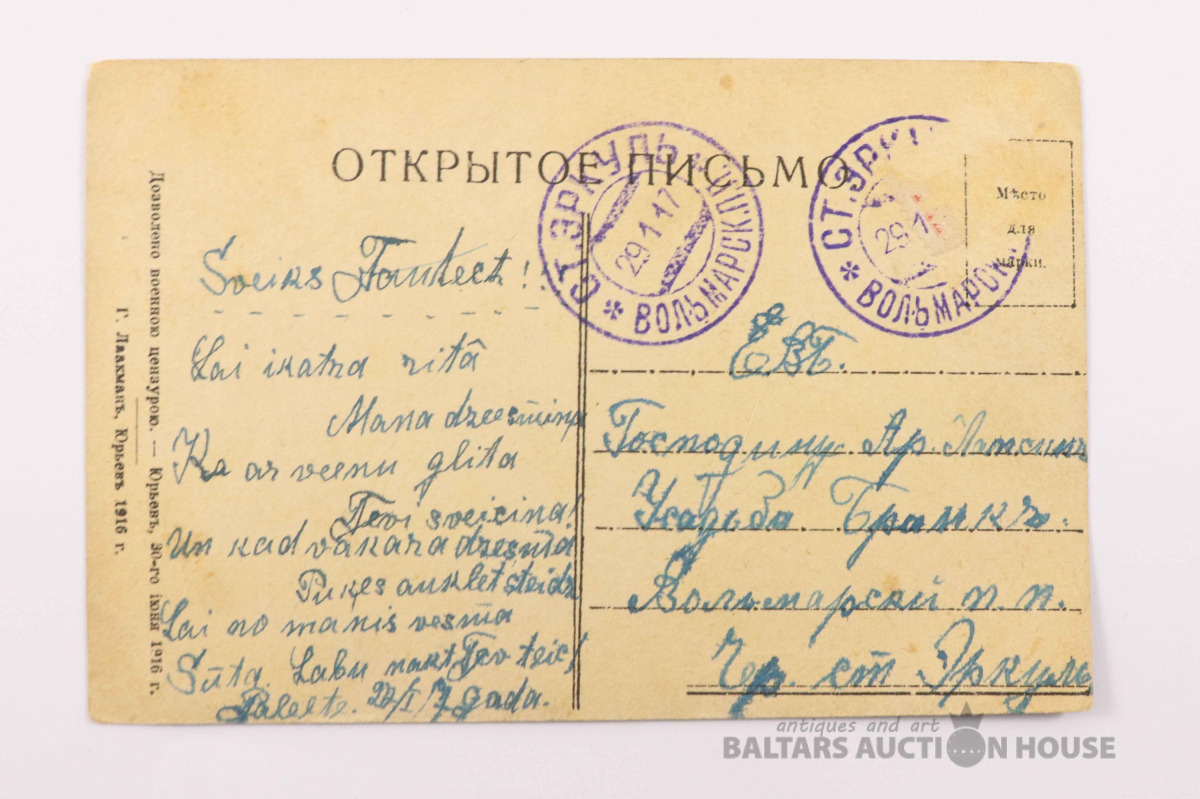 ОТКРЫТОЕ ПИСЬМО
Мѣсто
для
марки.
СТ. ЭРКУЛЬ * ВОЛЬМАРСК
29.1.17
СТ. ЭРКУ * ВОЛЬМАРСК
29.1
Дозволено военною цензурою. — Юрьевъ, 30-го іюня 1916 г.
Г. Лаакманъ, Юрьевъ 1916 г.
Sveiks
Lai ikatra ritâ
Mana dzeesmiņa
Ka ar veenu glita
Tevi sveicina!
Un kad vakara dzesma
Puķes auklet steidz
Lai no manis vesma
Sūta. Labu nakt Tev teic!
17 gada.
Е.В.Б.
Господину Ар.
Усадьба
Вольмарскій п. п.
Чер. ст Эркуль
antiques and art
BALTARS AUCTION HOUSE